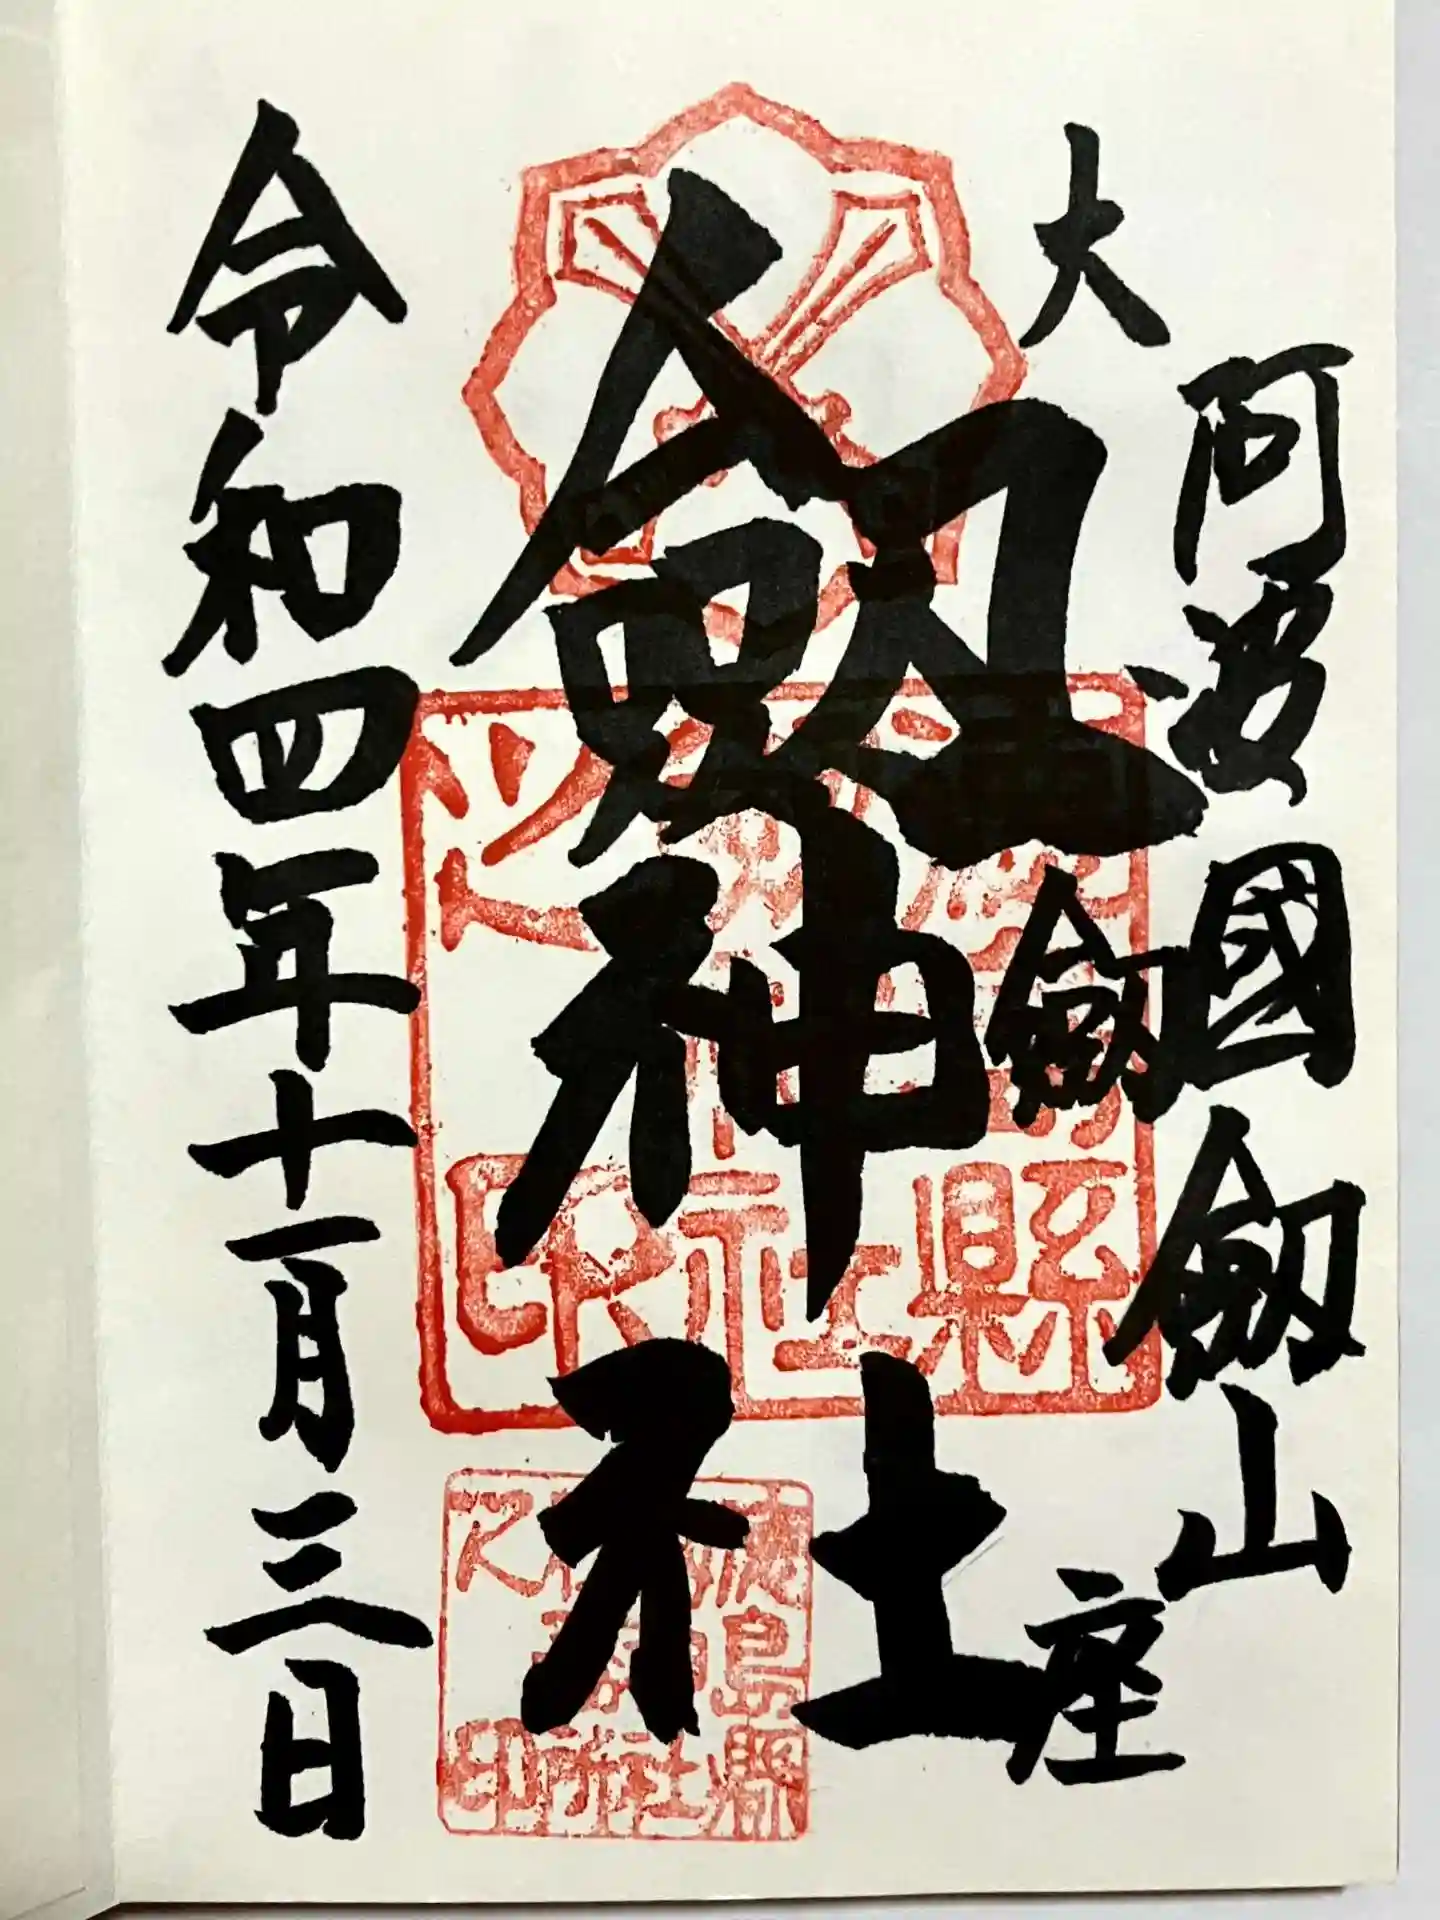 阿波國劔山
大劔座
劔神社
令和四年十一月三日
縣
社
之印
島縣